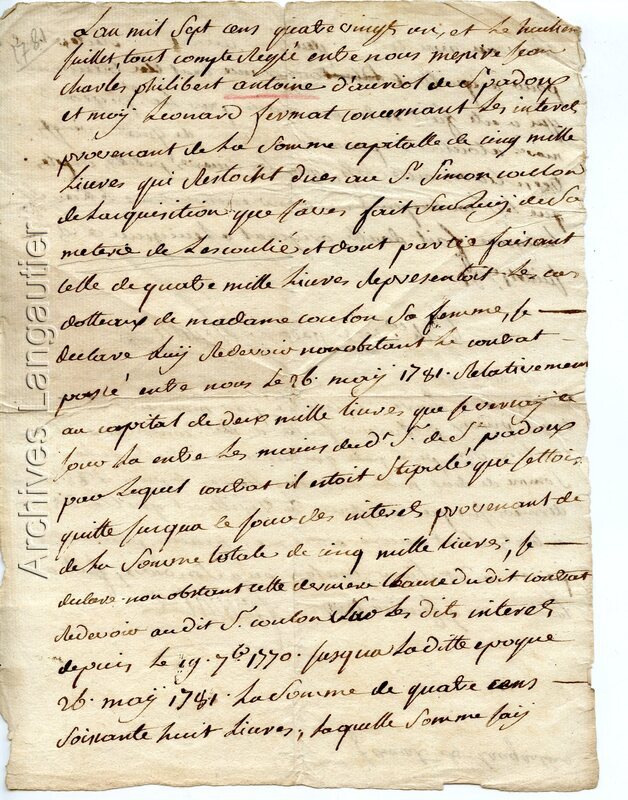 1781
L'an mil sept cens quatre vingt un, et le huitiem
juillet, tout compte reglé entre nous messire jean
charles philibert antoine d'auriol de St padoux
et moÿ Leonard fermat concernant les interets
provenant de la somme capitalle de cinq mille
Livres qui restoint dues au Sr. Simon coulon
de Lacquisition que j'aves fait sur luÿ de sa
meterie de Lescoulié et dont partie faisant
celle de quatre mille livres representoit les cas
dotteaux de madame coulon sa femme, je
declare luÿ redevoir nonobstant le contrat
passé entre nous le 26. maÿ 1781. relativement
au capital de deux mille livres que je versaÿ ce
jour la entre les mains du dt. Sr. de St padoux
par lequel contrat il estoit stipulé que jettois
quitte jusqua ce jour des interets provenant de
de la somme totale de cinq mille livres, je
declare nonobstant cette derniere clause du dit contrat
redevoir audit Sr. coulon sur les dits interets
depuis le 19. 7bre 1770. jusqua laditte epoque
26. maÿ 1781. la somme de quatre cens
soixante huit livres, laquelle somme jaÿ
Archives Langautier